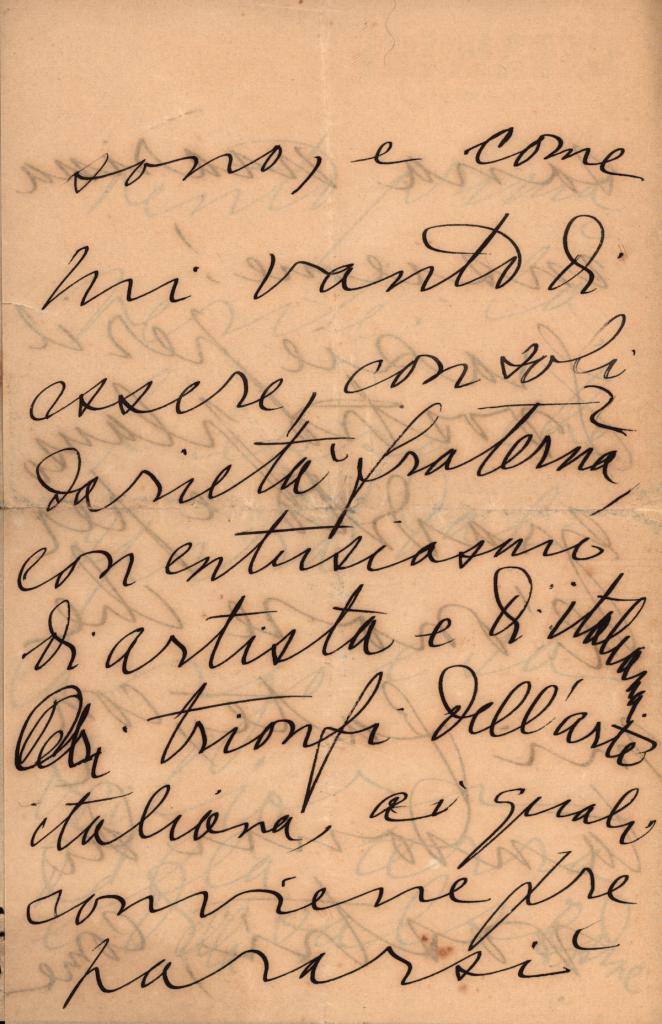 sono, e come
mi vanto di
essere, con soli
darietà fraterna,
con entusiasmi
di artista e d'italiano
ai trionfi dell'arte
italiana, ai quali
conviene pre
pararsi